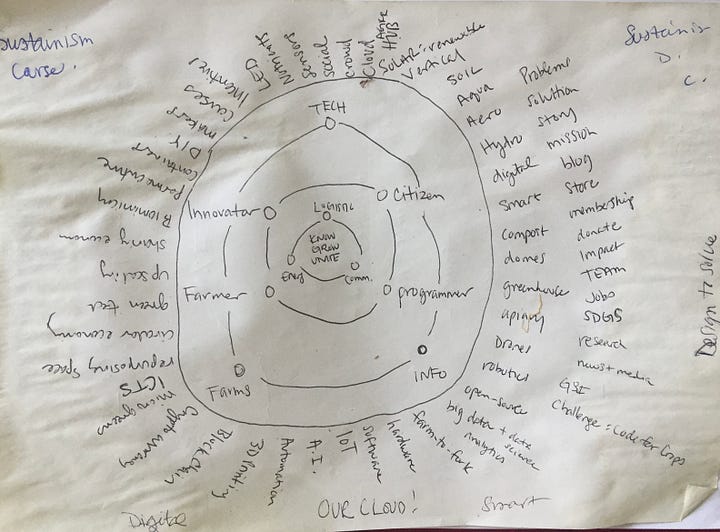 Sustainism
Carse.
Sustainis
D.
C.
LED
Nutrients
Sensors
Social
crowd
Cloud
HUB
SOLAR: renewable
Vertical
SOIL
Aqua
Aero
Hydro
digital
Smart
compost
domes
greenhouse
apiary
Drones
robotics
open-source
big data + data
analytics science
farm-to-fork
hardware
software
IoT
A.I.
Automation
3D Printing
BlockChain
Cryptocurrency
microgreens
ICTS
repurposing space
circular economy
green tech
upscaling
sharing econom
Biomimicry
permaculture
Container
DIY
makers
causes
Incentive!
Problems
solution
story
mission
blog
Store
membership
donate
Impact
TEAM
Jobs
SDGS
research
news + media
GSI
Challenge: Code for Crops
TECH
Innovator
Citizen
LOGISTIC
KNOW
GROW
UNITE
Energ
Comm.
Farmer
programmer
Farms
INFO
Design to solve
Digital
OUR CLOUD!
Smart